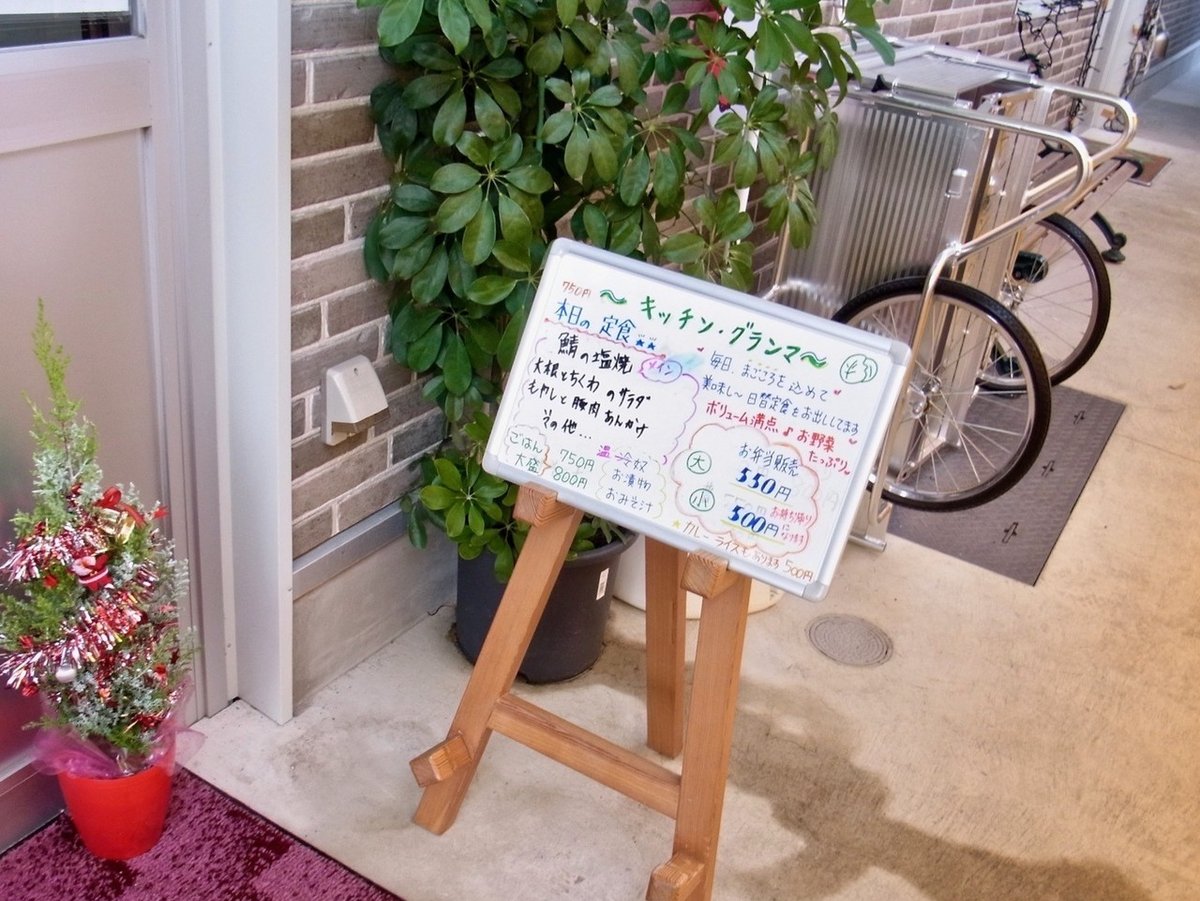 ～キッチン・グランマ～
750円
本日の定食
鯖の塩焼
メイン
大根とちくわのサラダ
もやしと豚肉あんかけ
その他…
ごはん 750円
大盛 800円
温 冷奴
お漬物
おみそ汁
毎日、まごころを込めて
美味し～日替定食をお出ししてます
ボリューム満点♪お野菜
たっぷり。
お弁当販売
大 550円
小 500円
お持ち帰り
になります
★カレーライスもあります 500円